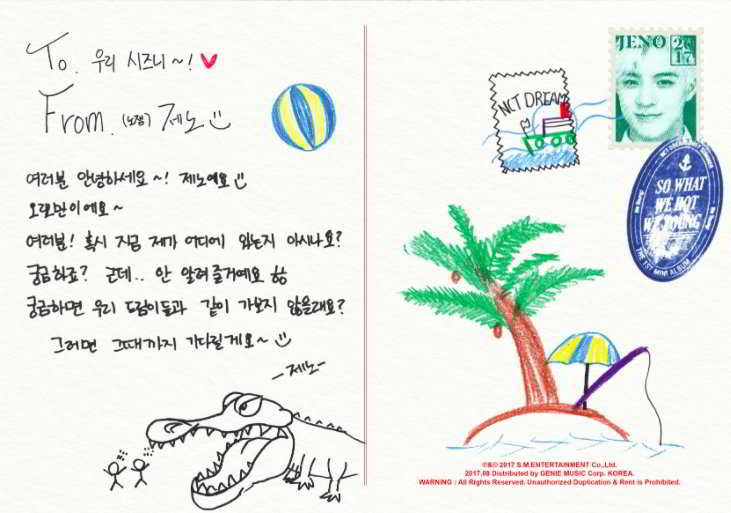 To. 우리 시즈니~!
From. (노잼) 제노
여러분 안녕하세요~! 제노예요
오랜만이에요~
여러분! 혹시 지금 제가 어디에 있는지 아시나요?
궁금하죠? 근데.. 안 알려줄거예요 ㅎㅎ
궁금하면 우리 드림이들과 같이 가보지 않을래요?
그러면 그때까지 기다릴게요~
-제노-
NCT DREAM
JENO 2017
SO WHAT
WE HOT
WE YOUNG
THE 1ST MINI ALBUM
℗&© 2017 S.M.ENTERTAINMENT Co.,Ltd.
2017.08 Distributed by GENIE MUSIC Corp. KOREA.
WARNING : All Rights Reserved. Unauthorized Duplication & Rent is Prohibited.